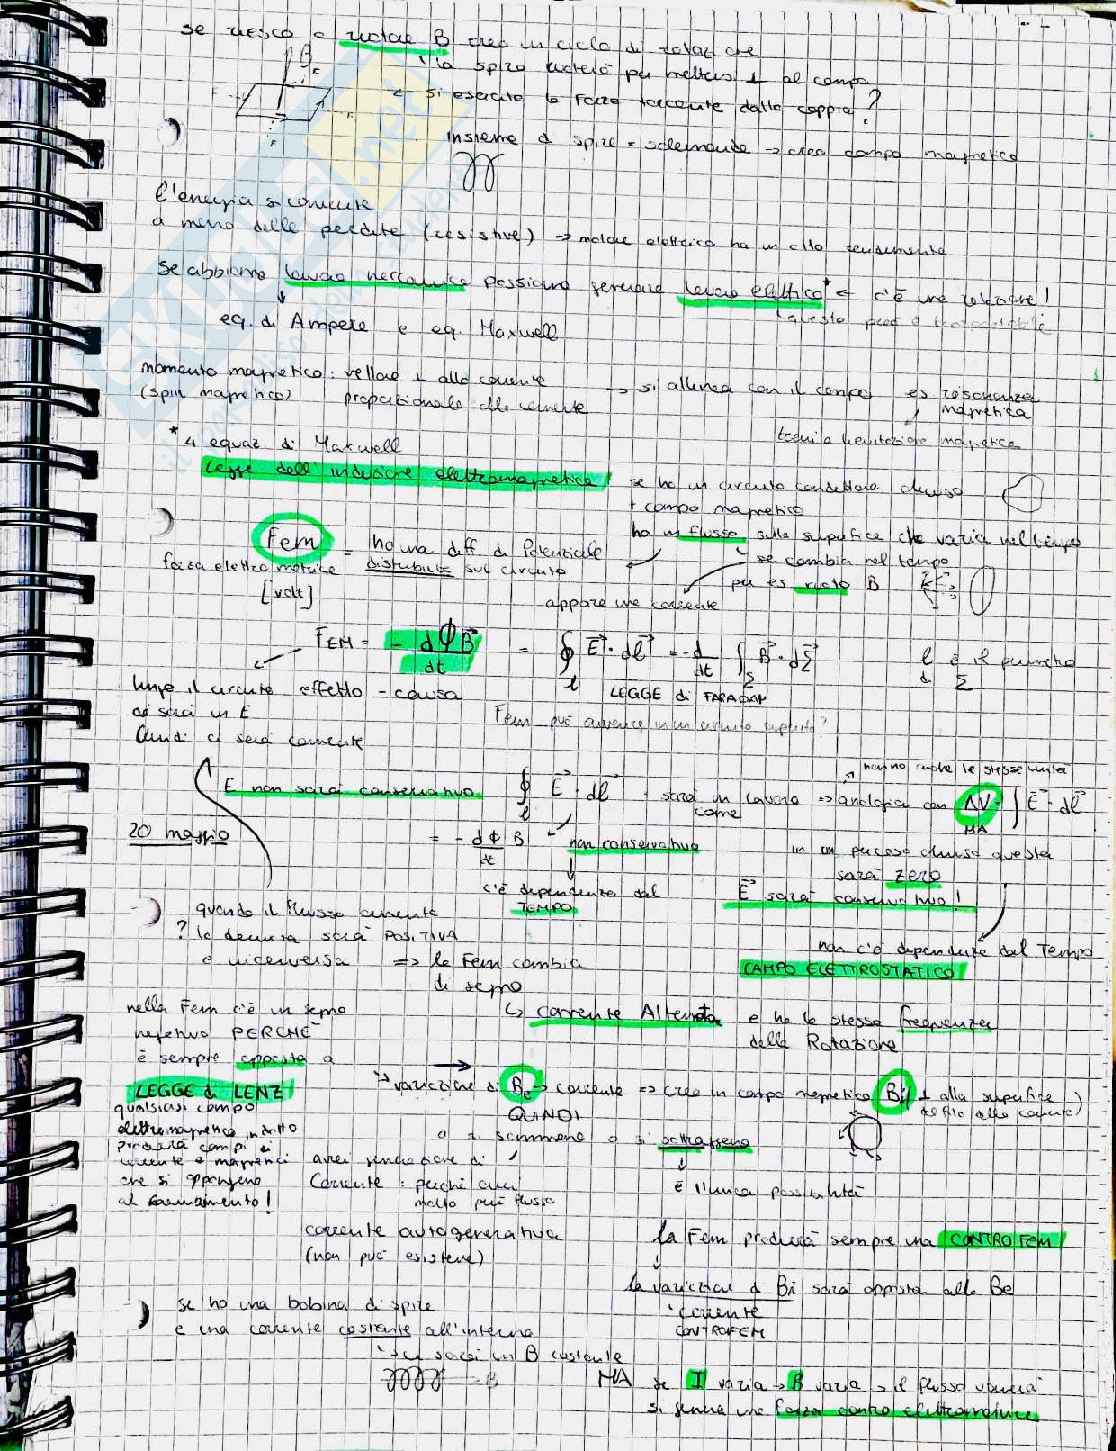 se riesco a ruotare B creo un ciclo di rotazione
la spira ruoterà per mettersi ⊥ al campo
← si esercita la forza torcente dalla coppia?
B
insieme di spire = solenoide → crea campo magnetico
l'energia si converte
a meno delle perdite (resistive) → motore elettrico ha un alto rendimento
se abbiamo lavoro meccanico possiamo generare lavoro elettrico* ← c'è una relazione!
eq. di Ampere e eq. Maxwell
questo però è
momento magnetico: vettore ⊥ alla corrente → si allinea con il campo es risonanza magnetica
(spin magnetico) proporzionale alla corrente
levitazione magnetica
* 4 equaz. di Maxwell
legge dell'induzione elettromagnetica!
se ho un circuito conduttore chiuso
+ campo magnetico
ho un flusso sulla superfice che varia nel tempo
se cambia nel tempo
per es ruoto B
Fem = ho una diff. di Potenziale
forza elettro motrice distribuita sul circuito
[volt]
appare una corrente
FEM = - dΦB/dt = ∮l E · dl = -d/dt ∫Σ B · dΣ
l è il perimetro
di Σ
LEGGE di FARADAY
lungo il circuito effetto - causa
ci sarà un E
Quindi ci sarà corrente
Fem può avvenire in un circuito aperto?
hanno anche le stesse unità
E non sarà conservativo ∮l E · dl sarà un lavoro ⇒ analogia con ΔV = ∫ E · dl
come
MA
20 maggio
= - dΦ B/dt ← non conservativo
in un percorso chiuso questa
sarà zero
c'è dipendenza dal
TEMPO
E sarà conservativo!
quando il flusso aumenta
? la derivata sarà POSITIVA
e viceversa ⇒ la Fem cambia
di segno
non c'è dipendenza dal Tempo
CAMPO ELETTROSTATICO
↳ corrente Alternata e ha la stessa frequenza
della Rotazione
nella Fem c'è un segno
negativo PERCHÉ
è sempre opposta a
LEGGE di LENZ
variazione di Be → corrente ⇒ crea un campo magnetico Bi ⊥ alla superfice
QUINDI
qualsiasi campo
elettromagnetico indotto
produrrà campi di
corrente e magnetici
che si oppongono
al
o si sommano o si sottraggono
avrei generazione di
corrente: perché avrei
molto più flusso
è l'unica possibilità
corrente autogenerativa
(non può esistere)
la Fem produrrà sempre una CONTROFEM
la variazione di Bi sarà opposta alla Be
corrente
CONTROFEM
se ho una bobina di spire
e una corrente costante all'interno
ci sarà un B costante
B
MA se I varia → B varia → il flusso varierà
si genera una forza contro elettromotrice